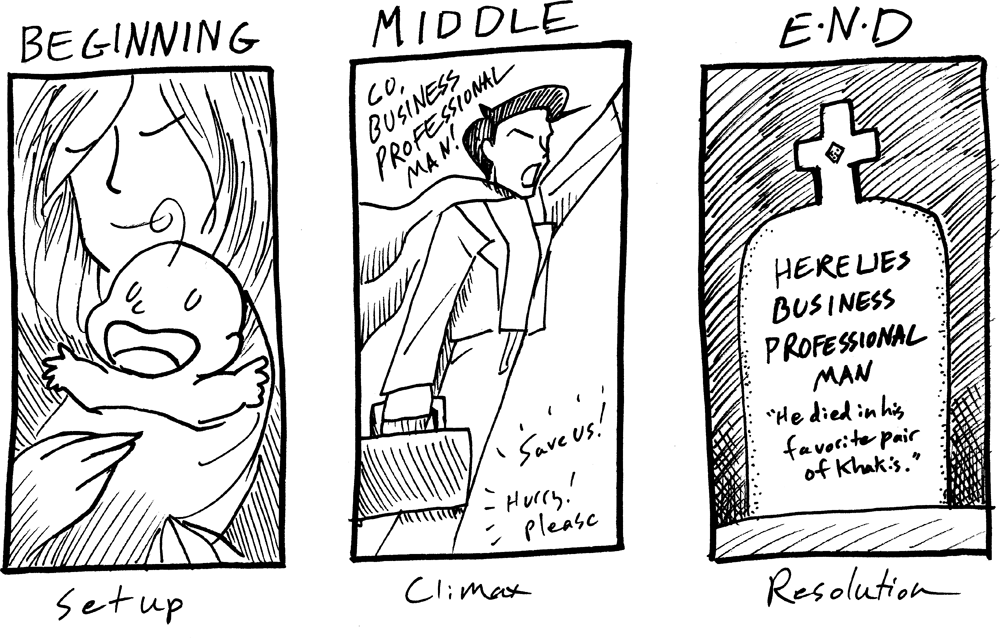 BEGINNING
MIDDLE
E·N·D
GO,
BUSINESS
PROFESSIONAL
MAN!
'Save us!
Hurry!
please
HERE LIES
BUSINESS
PROFESSIONAL
MAN
"He died in his
favorite pair
of Khakis."
Setup
Climax
Resolution